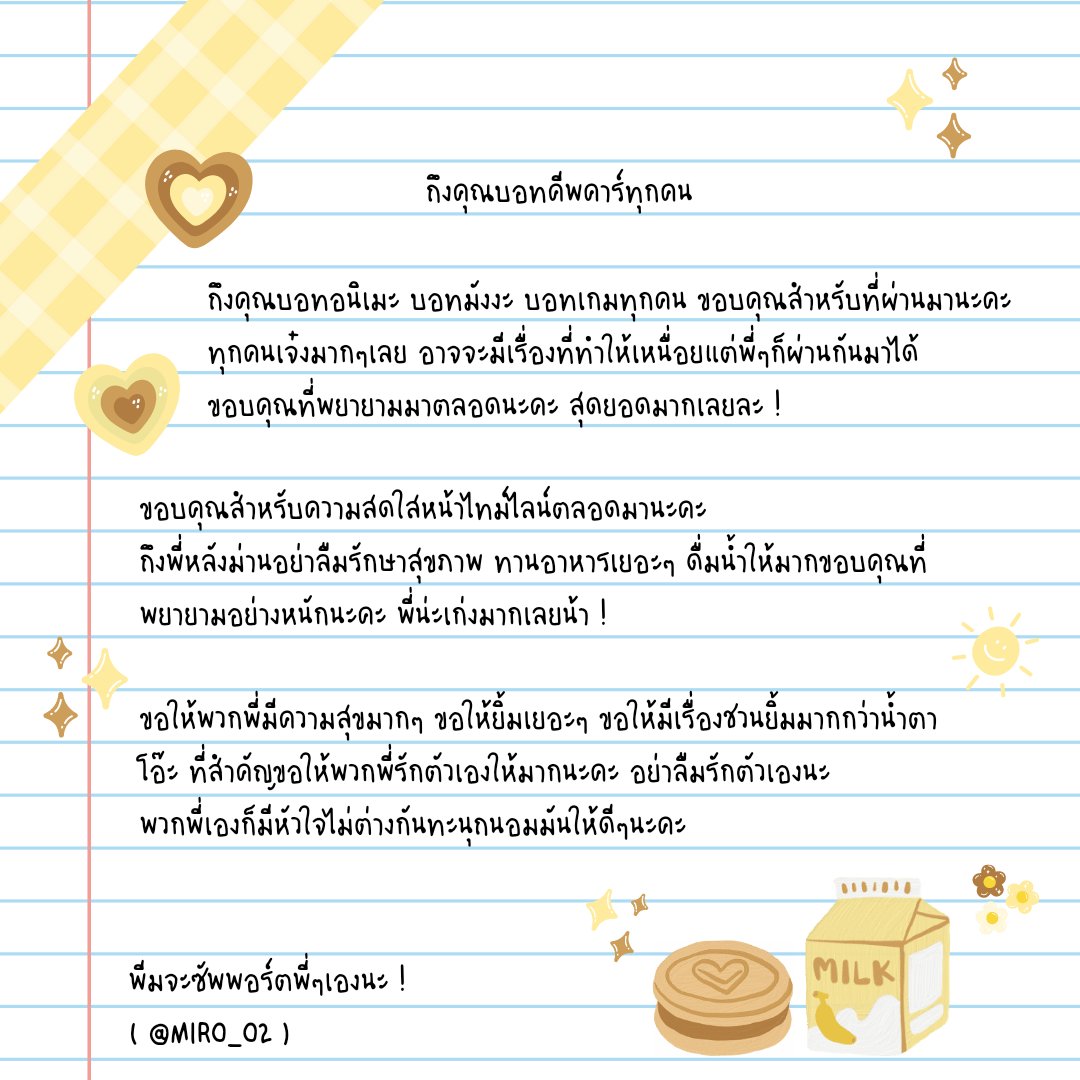 ถึงคุณบอทดีพคาร์ทุกคน
ถึงคุณบอทอนิเมะ บอทมังงะ บอทเกมทุกคน ขอบคุณสำหรับที่ผ่านมานะคะ
ทุกคนเจ๋งมากๆเลย อาจจะมีเรื่องที่ทำให้เหนื่อยแต่พี่ๆก็ผ่านกันมาได้
ขอบคุณที่พยายามมาตลอดนะคะ สุดยอดมากเลยละ !
ขอบคุณสำหรับความสดใสหน้าไทม์ไลน์ตลอดมานะคะ
ถึงพี่หลังม่านอย่าลืมรักษาสุขภาพ ทานอาหารเยอะๆ ดื่มน้ำให้มากขอบคุณที่
พยายามอย่างหนักนะคะ พี่น่ะเก่งมากเลยน้า !
ขอให้พวกพี่มีความสุขมากๆ ขอให้ยิ้มเยอะๆ ขอให้มีเรื่องชวนยิ้มมากกว่าน้ำตา
โอ๊ะ ที่สำคัญขอให้พวกพี่รักตัวเองให้มากนะคะ อย่าลืมรักตัวเองนะ
พวกพี่เองก็มีหัวใจไม่ต่างกันทะนุถนอมมันให้ดีๆนะคะ
MILK
พีมจะซัพพอร์ตพี่ๆเองนะ !
( @MIRO_02 )